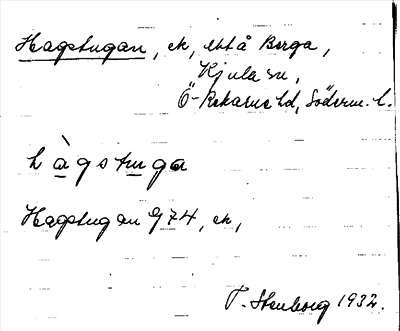 Hagstugan, ek, utså Berga,
Kjula sn,
Ö-Rekarne hd, Söderm. l.
hàgstuga
Hagstugan G74, ek,
T. Stenborg 1932.